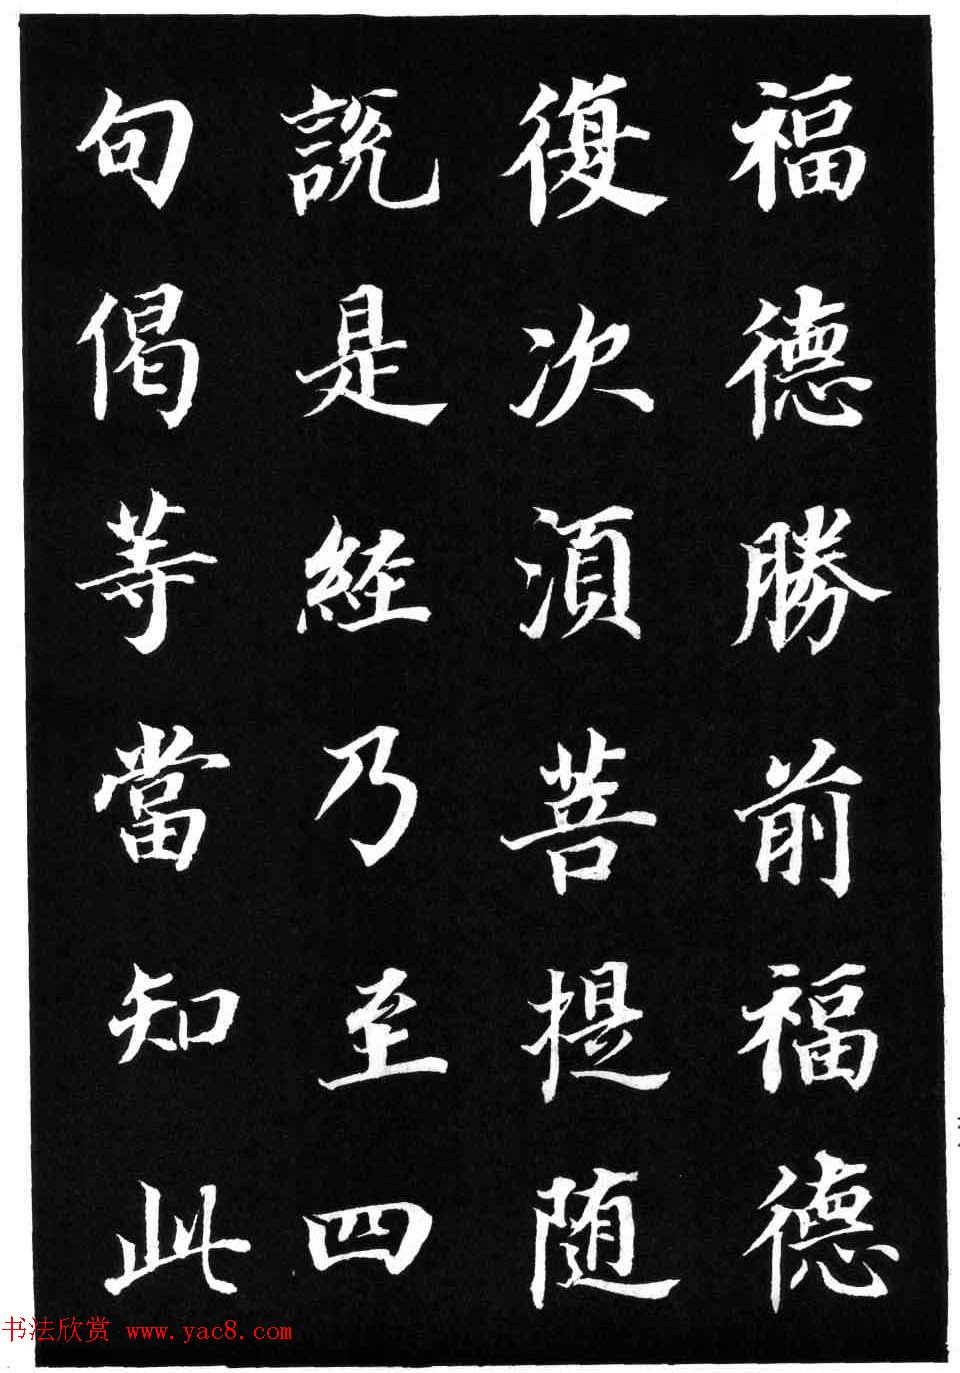 福德勝前福德
復次須菩提随
說是經乃至四
句偈等當知此
书法欣赏 www.yac8.com